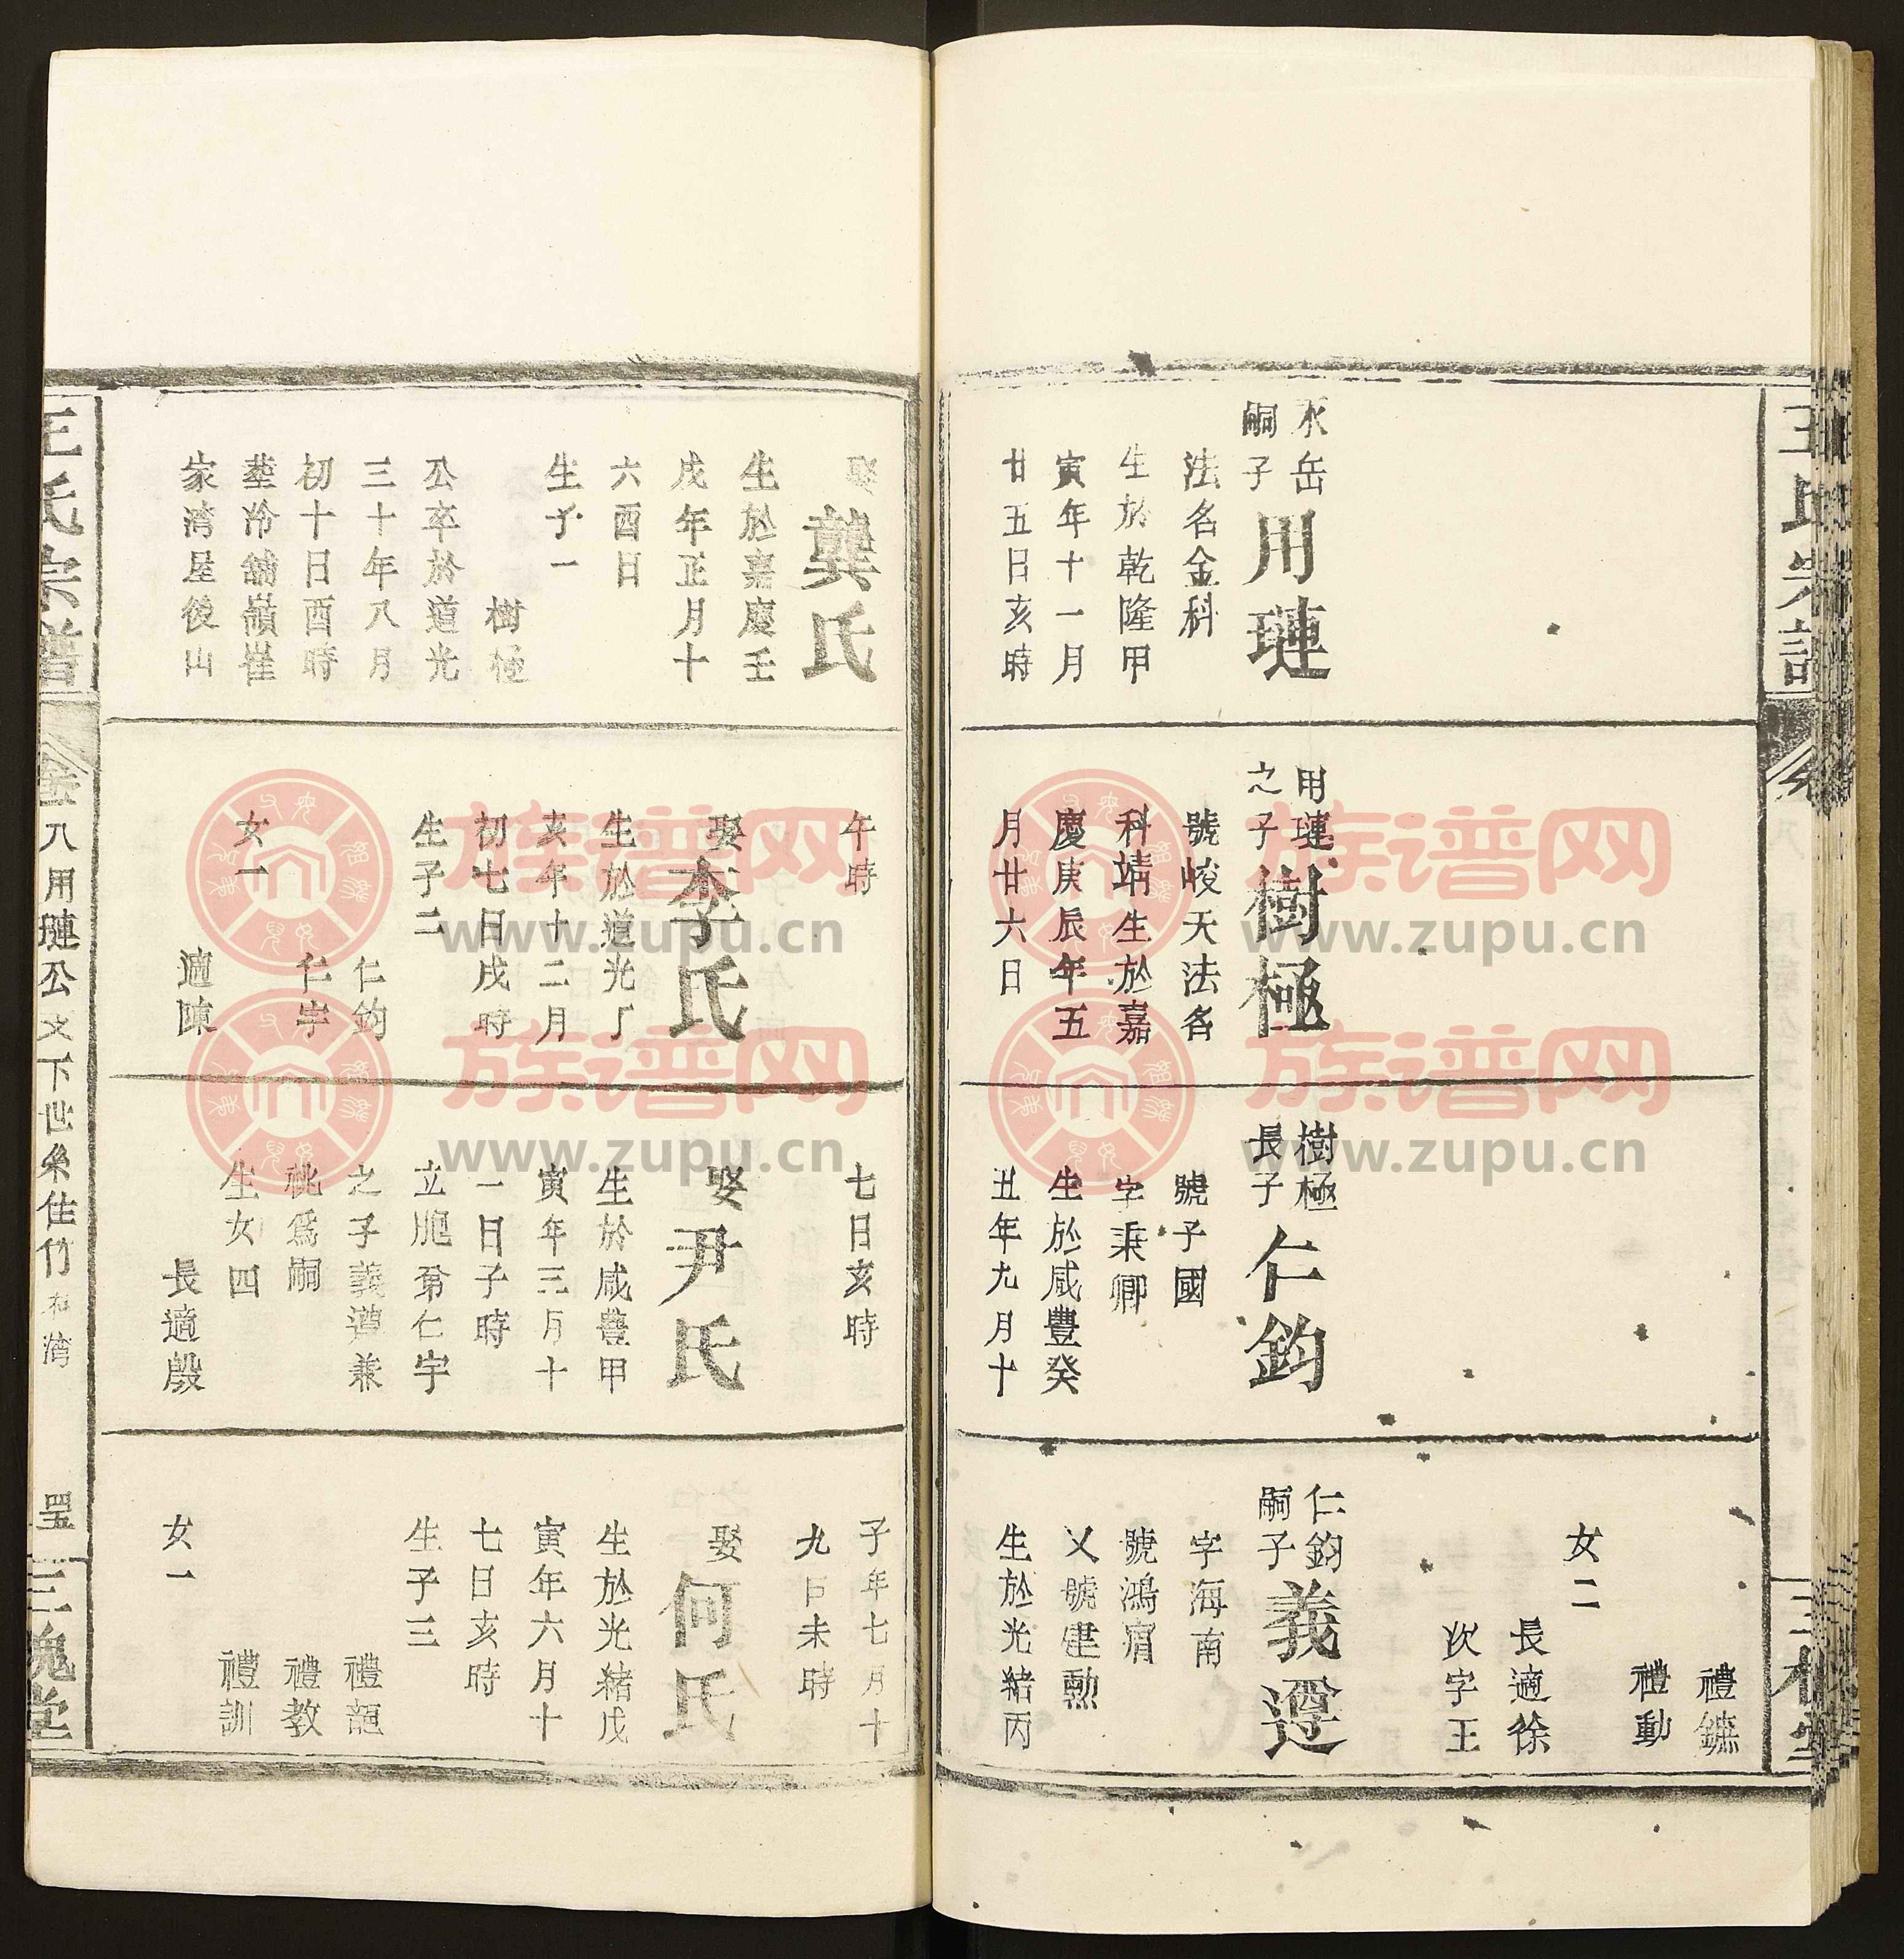 王氏宗譜
水岳
嗣子
用璉
法名金科
生於乾隆甲
寅年十一月
廿五日亥時
用璉
之子
樹極
號峻天法名
科靖生於嘉
慶庚辰年五
月廿六日
樹極
長子
仁鈞
號子國
字秉卿
生於咸豐癸
丑年九月十
禮鑣
禮動
女二
長適徐
次字王
仁鈞
嗣子
義遵
字海南
號鴻賓
又號建勳
生於光緒丙
娶
龔氏
生於嘉慶壬
戌年正月十
六酉日
生子一
樹極
公卒於道光
三十年八月
初十日酉時
葬冷舖嶺崔
家灣屋後山
午時
娶
李氏
生於道光丁
亥年十二月
初七日戌時
生子二
仁鈞
仁宇
女一
適陳
七日亥時
娶
尹氏
生於咸豐甲
寅年三月十
一日子時
立胞弟仁宇
之子義遵兼
祧為嗣
生女四
長適殷
子年七月十
九日未時
娶
何氏
生於光緒戊
寅年六月十
七日亥時
生子三
禮
禮教
禮訓
女一
王氏宗譜
卷八用璉公文下世系住竹林灣
三槐堂
族谱网
www.zupu.cn
族谱网
www.zupu.cn
族谱网
www.zupu.cn
族谱网
www.zupu.cn